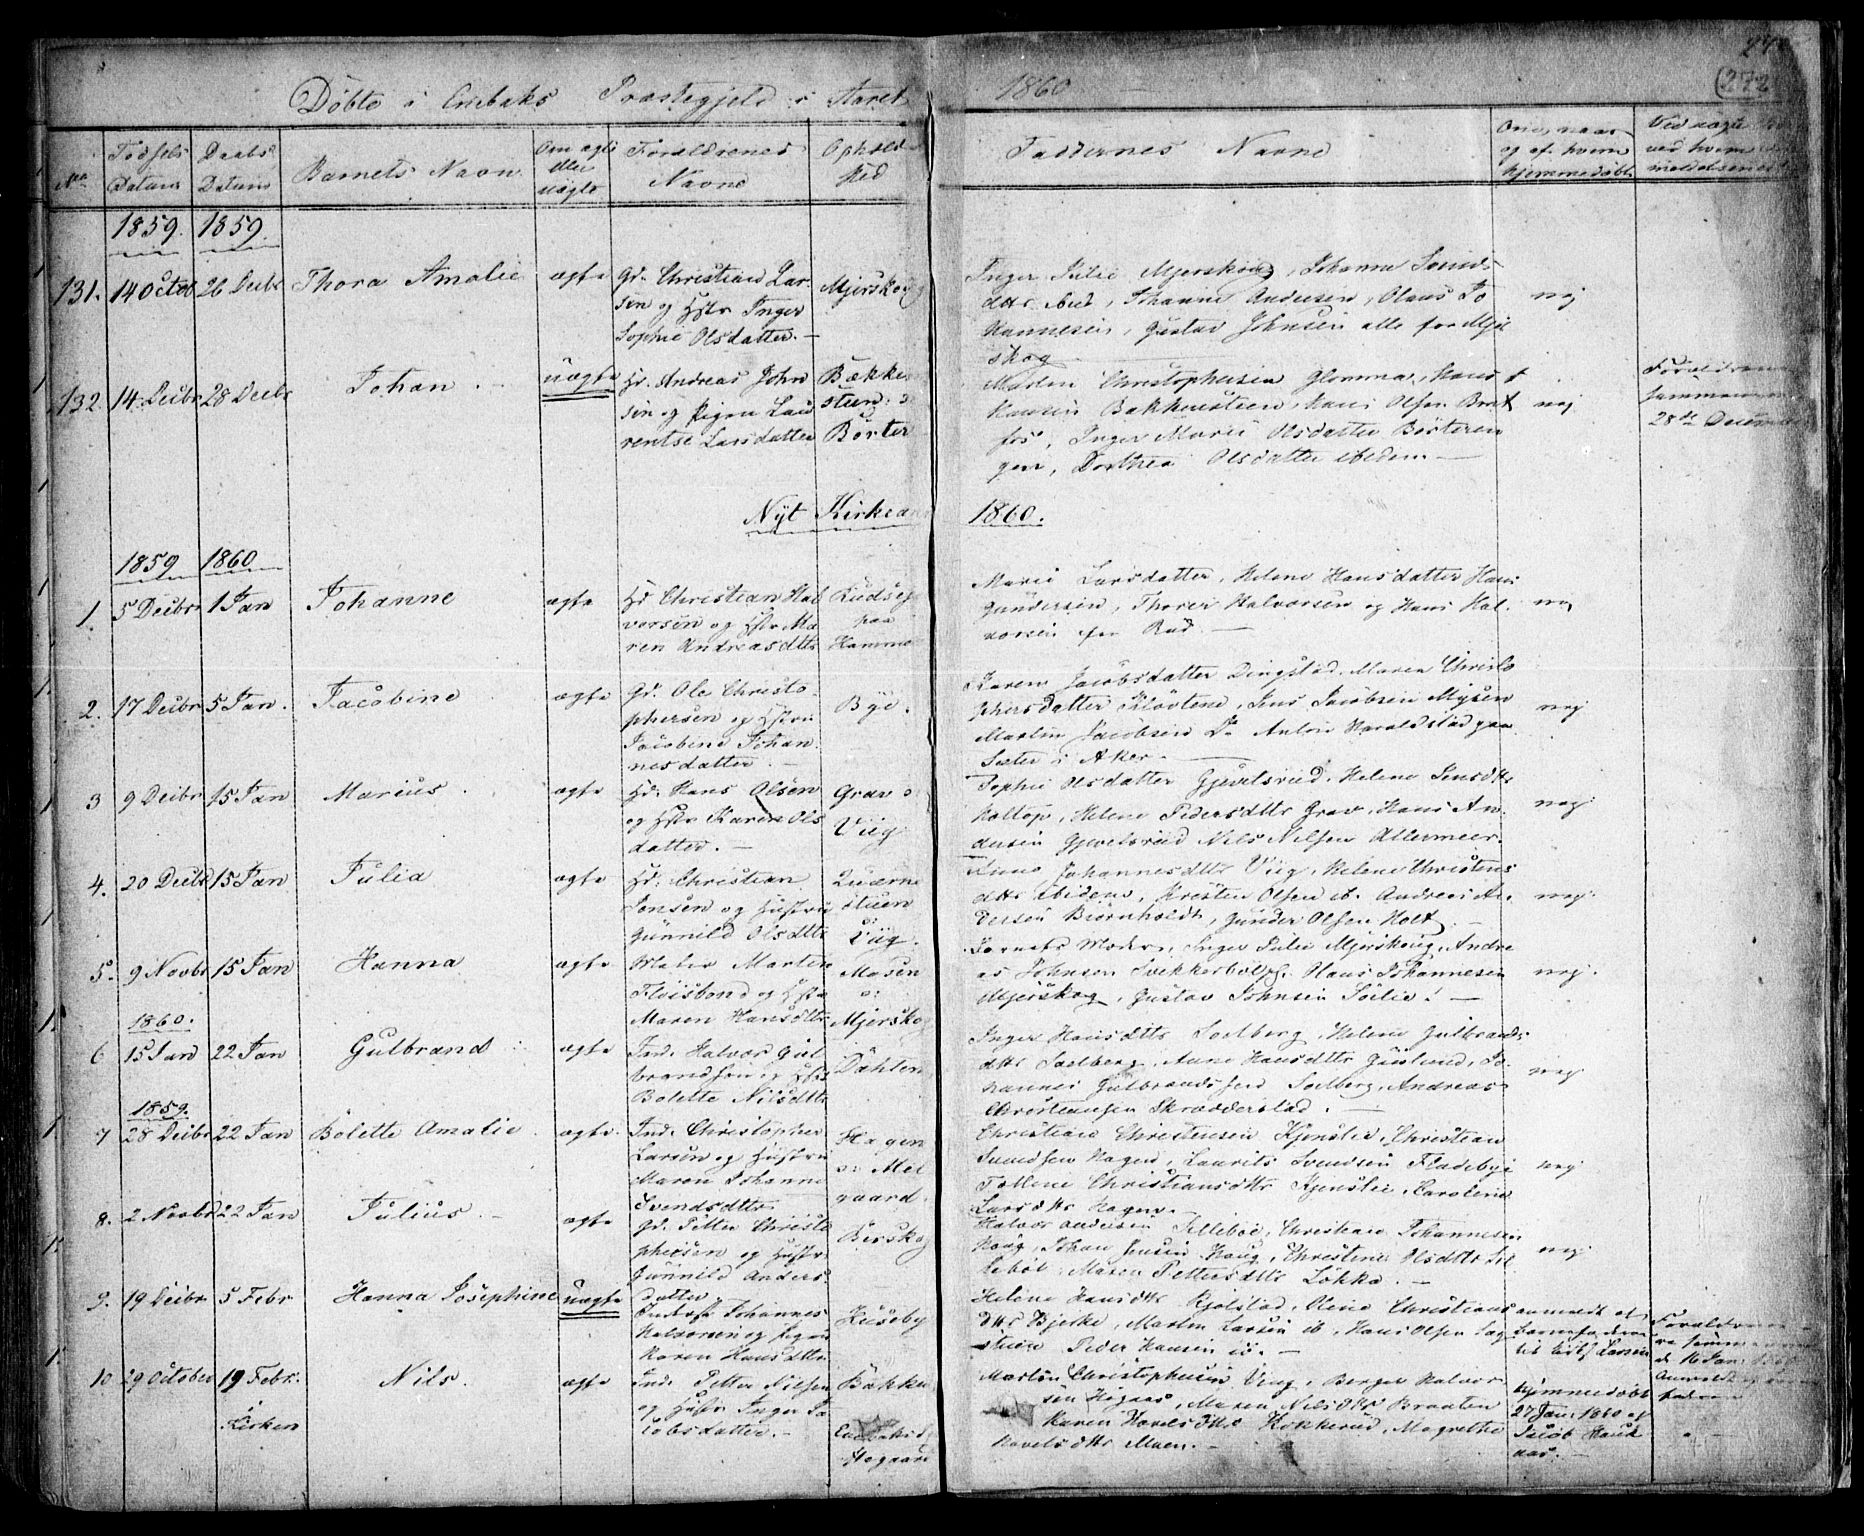 Døbte i Enebaks Præstegjeld i Aaret 1860
272
No
Fødsels Datum
Daabs Datum
Barnets Navn
Om ægte eller uægte
Forældrenes Navne
Opholdssted
Faddernes Navne
Om, naar og af hvem hjemmedøbt
Ved uægte
ved hvem
1859. 1859.
131. 14 Octob 26 Decbr Thora Amalie ægte
Gd. Christian Lar
sen og Hstr Inger
Sophie Olsdatter. –
Mjerskog
Inger Julie Mjerskog, Johanne Svends
dttr ibid, Johanne Andersen, Olaus Jo
hannesen, Gustav Johnsen alle fra Mjer
skog
nej
132. 14 Decbr 28 Decbr Johan. uægte
Hd. Andreas John
sen og Pigen Lau
rentse Larsdatter
Bække
stuen
Børter
Marten Christophersen Glomma, Hans
Hansen Bakkenstuen, Hans Olsen Brat
fos, Inger Marie Olsdatter Børteren
gen, Dorthea Olsdatter ibidem. –
nej
Forældrene
28de December
Nyt Kirkeaar 1860.
1859 1860
1. 5 Decbr 1 Jan Johanne ægte
Hd Christian Hal
vorsen og Hstr Ma
ren Andreasdttr
Rudsej
paa
Hamme
Marie Larsdatter, Helene Hansdatter Hans
Gundersen, Thorer Halvorsen og Hans Hal
vorsen fra Rud. –
nej
2. 17 Decbr 5 Jan. Jacobine ægte
Gd. Ole Christo
phersen og Hstru
Jacobine Johan
nesdatter. –
Bye.
Karen Jacobsdatter Dingstad, Maren Christo
phersdatter Kløvtene, Jens Jacobsen Mysen
Marten Jacobsen Do Anton Haraldstad paa
Sæter i Aker. –
nej
3 9 Decbr 15 Jan Marius. ægte
Hd. Hans Olsen
og Hstr Karen Ols
datter. –
Grav
Viig
Sophie Olsdatter Gjevelsrud, Helene Jensdttr
Holtop, Helene Pedersdttr Grav, Hans An
dersen Gjevelsrud Nils Nilsen Allermeer.
nej.
4. 20 Decbr 15 Jan Julia ægte
Hd. Christian
Jonsen og Hustru
Gunnild Olsdttr
Quærne
stuen
o:
Viig.
Johannesdttr Viig, Helene Christens
dttr ibidem, Kristen Olsen ib. Andreas An
dersen Biørnholdt, Gunder Olsen Holt.
nej.
5. 9 Novbr 15 Jan Hanna ægte
Maler Marten
Fleisbond og Hstr
Maren Hansdttr
Mosen
o:
Mjerskog
Barnets Moder, Inger Julie Mjerskoug, Andre
as Johnsen Svekkerbøl, Olaus Johannesen
Mjerskog, Gustav Johnsen Solie. –
nej.
1860.
6 15 Jan 22 Jan Gulbrand ægte
Ind. Halvor Gul
brandsen og Hstr
Bolette Nilsdttr
Dahlen
Inger Hansdttr Solberg, Helene Gulbrands
dttr Solberg, Anne Hansdttr Gislund, Jo
hannes Gulbrandssen Solberg, Andreas
Christiansen Skrædderstad. –
nej.
1859.
7 28 Decbr 22 Jan Bolette Amalie. ægte.
Ind. Christopher
Larsen og Hustru
Maren Johanne
Svendsdttr
Hagen
o: Mel
gaard.
Christian Christensen Kjenslie, Christian
Svendsen Hagen, Laurits Svendsen Fladebye
Tollene Christiansdttr Kjenslie, Karoline
Larsdttr Hagen. –
nej
8. 2 Novbr 22 Jan Julius. – ægte
Gd. Petter Christo
phersen og Hustr
Gunnild Anders
datter
Berskog
Halvor Andersen Tillebøl, Christian Johannesen
Houg, Johan Jensen Houg, Christine Olsdttr Til
lebøl, Maren Pettersdttr Løkka. –
nej.
9. 19 Decbr 5 Febr Hanna Josephine uægte
Johannes
Halvorsen og Pigen
Karen Hansdttr
Huseby
Helene Hansdttr Kjølstad, Olene Christians
dttr Bjerke, Marten Larsen ib, Hans Olsen
stuen Peder Hansen ib. –
anmeldt af
Larsen
Forældrene
16 Jan 1860
10 29 October 19 Febr. i Kirken Nils. ægte
Ind. Petter Nilsen
og Hustr Inger Ja
cobsdatter. –
Bakke
Høgaas
Marten Christophersen Viig, Berger Halvor
sen Høgaas, Maren Nilsdttr Braaten
Karen Havelsdttr Kokkerud, Magrethe
Havelsdttr Moen. –
hjemmedøbt
27 Jan. 1860 af
Jacob Hauk
aas. –